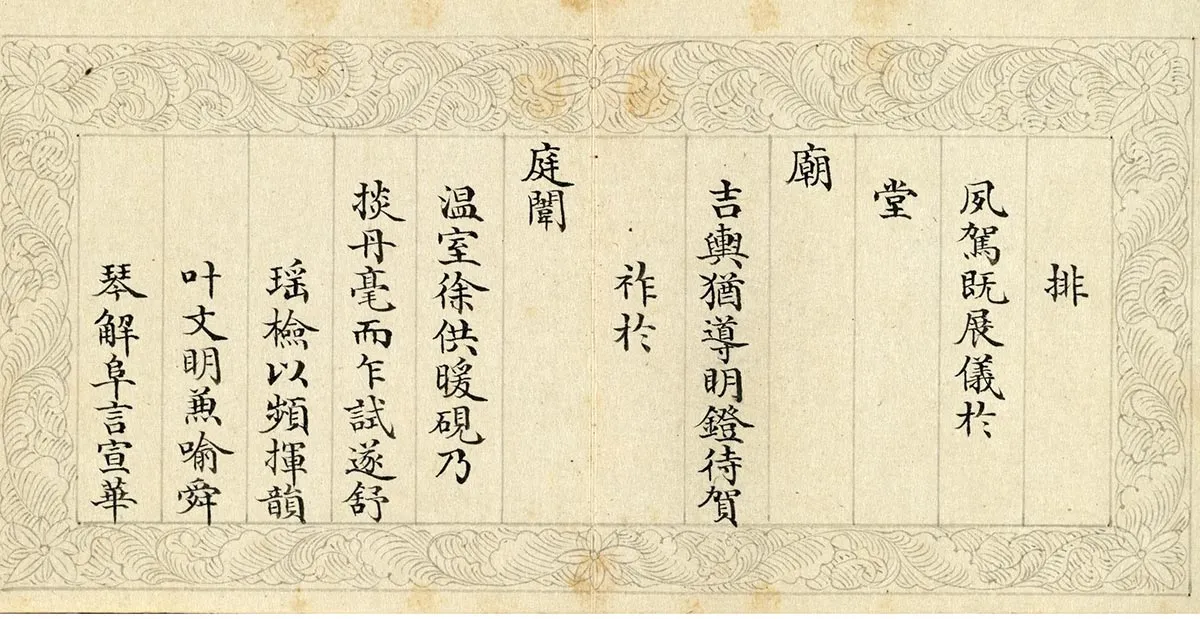 排
夙駕既展儀於
堂
廟
吉輿猶導明鐙待賀
祚於
庭闈
温室徐供暖硯乃
掞丹毫而乍試遂舒
瑶檢以頻揮韻
叶文明兼喻舜
琴解阜言宣華